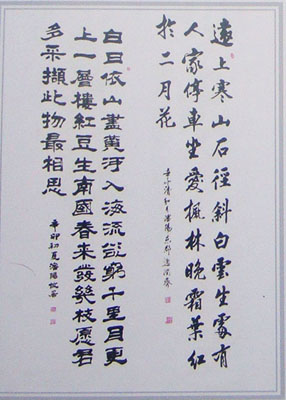 遠上寒山石徑斜白雲生處有
人家停車坐愛楓林晚霜葉紅
於二月花
白日依山盡黄河入海流欲窮千里目更
上一層樓紅豆生南國春來發幾枝愿君
多采擷此物最相思
辛卯初夏